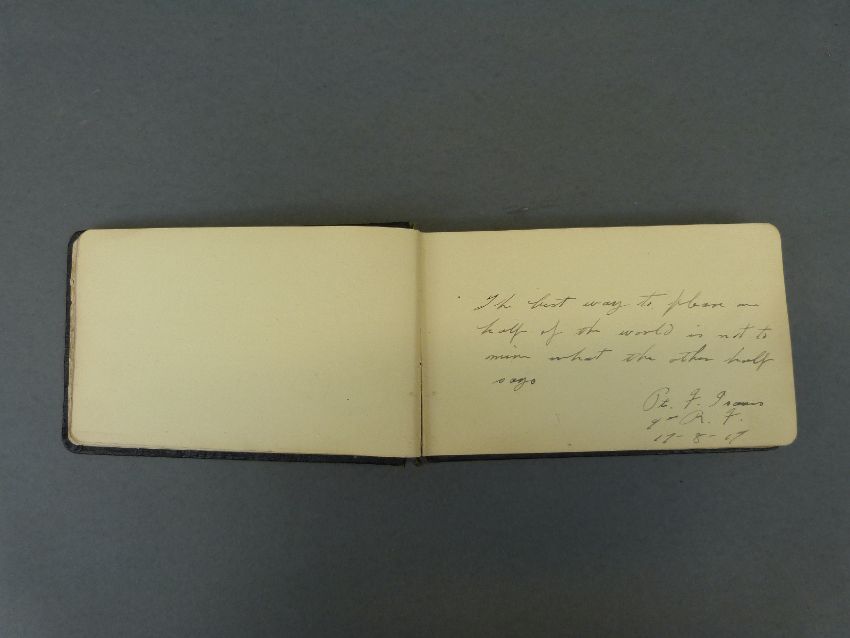 The best way to please one
half of the world is not to
mine what the other half
says
Pt. F.
R. F.
17-8-17